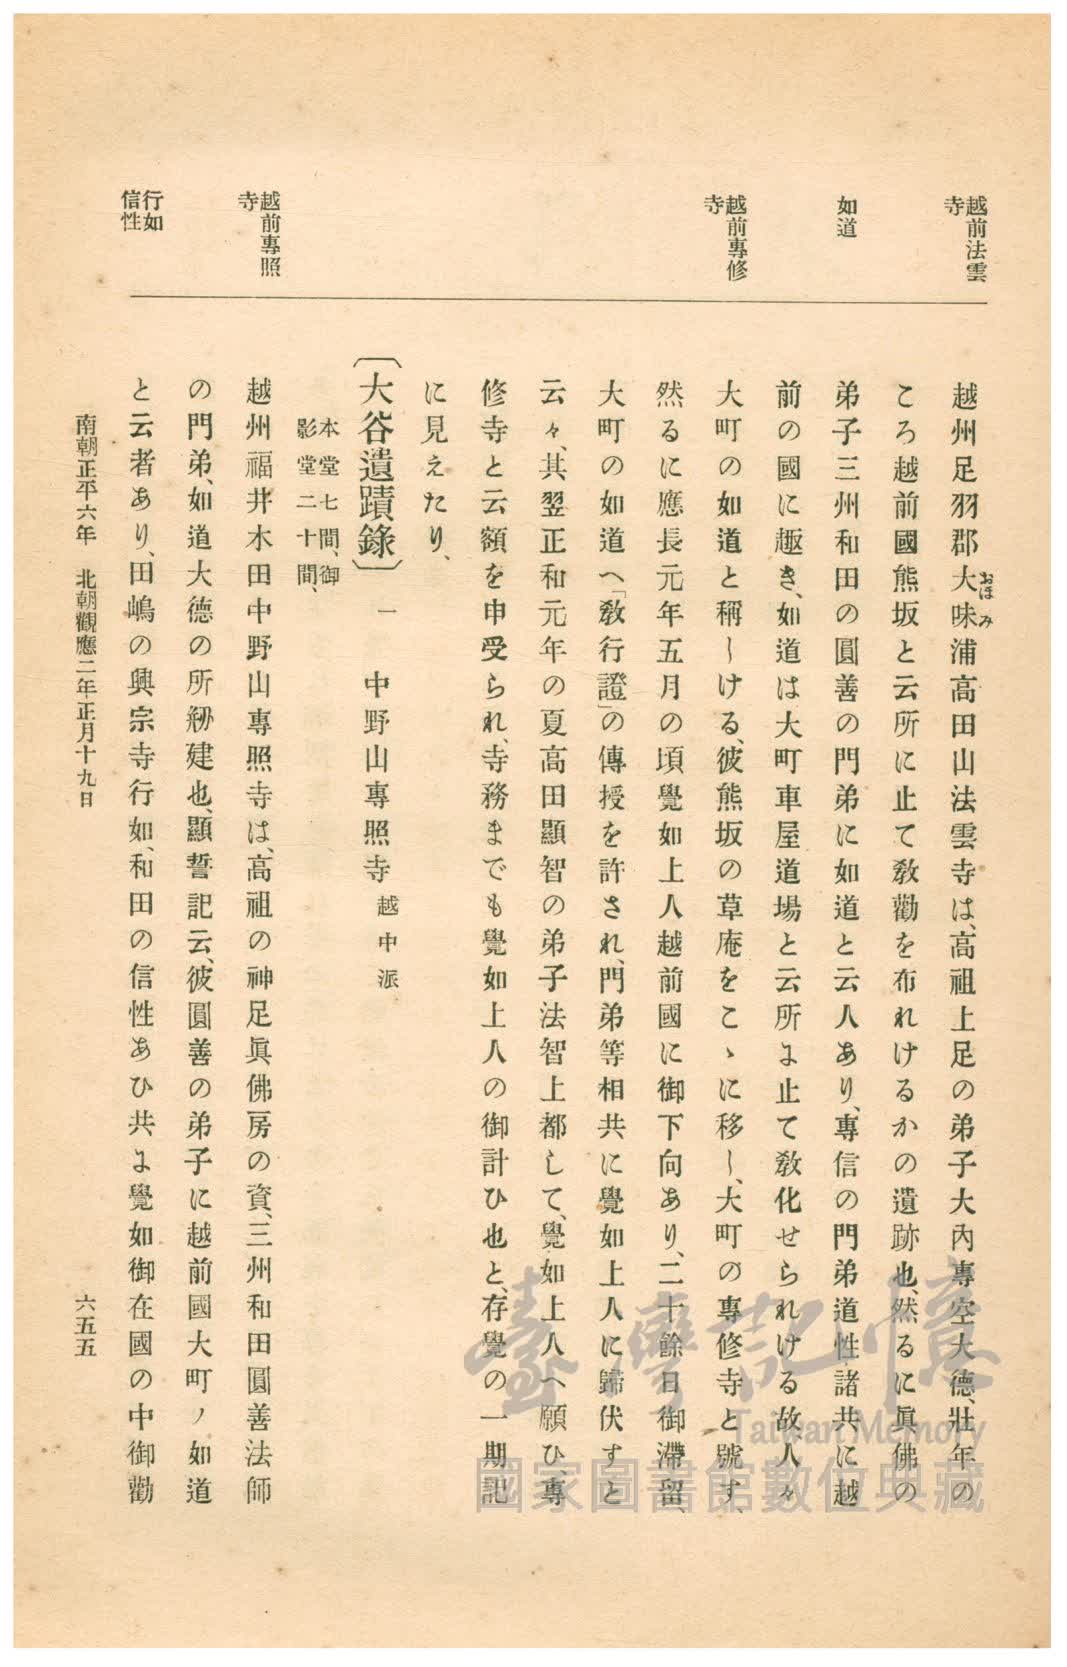 越前法雲
寺
如道
越前專修
寺
越前專照
寺
行如
信性
越州足羽郡大味浦高田山法雲寺は、高祖上足の弟子大內專空大德、壯年の
おほみ
ころ越前國熊坂と云所に止て敎勸を布れけるかの遺跡也、然るに眞佛の
弟子三州和田の圓善の門弟に如道と云人あり、專信の門弟道性諸共に越
前の國に趣き、如道は大町車屋道場と云所よ止て敎化せられける故、人々
大町の如道と稱しける、彼熊坂の草庵をこゝに移し、大町の專修寺と號す、
然るに應長元年五月の頃覺如上人越前國に御下向あり、二十餘日御滯留、
大町の如道へ「敎行證」の傳授を許され、門弟等相共に覺如上人に歸伏すと
云々、其翌正和元年の夏高田顯智の弟子法智上都して、覺如上人へ願ひ、專
修寺と云額を申受られ、寺務までも覺如上人の御計ひ也と、存覺の一期記
に見えたり、
〔大谷遺蹟錄〕一 中野山專照寺 越中派
本堂七間、御
影堂二十間、
越州福井木田中野山專照寺は、高祖の神足眞佛房の資、三州和田圓善法師
の門弟、如道大德の所剏建也、顯誓記云、彼圓善の弟子に越前國大町ノ如道
と云者あり、田嶋の興宗寺行如、和田の信性あひ共よ覺如御在國の中御勸
南朝正平六年 北朝觀應二年正月十九日
六五五
臺灣記憶
Taiwan Memory
國家圖書館數位典藏